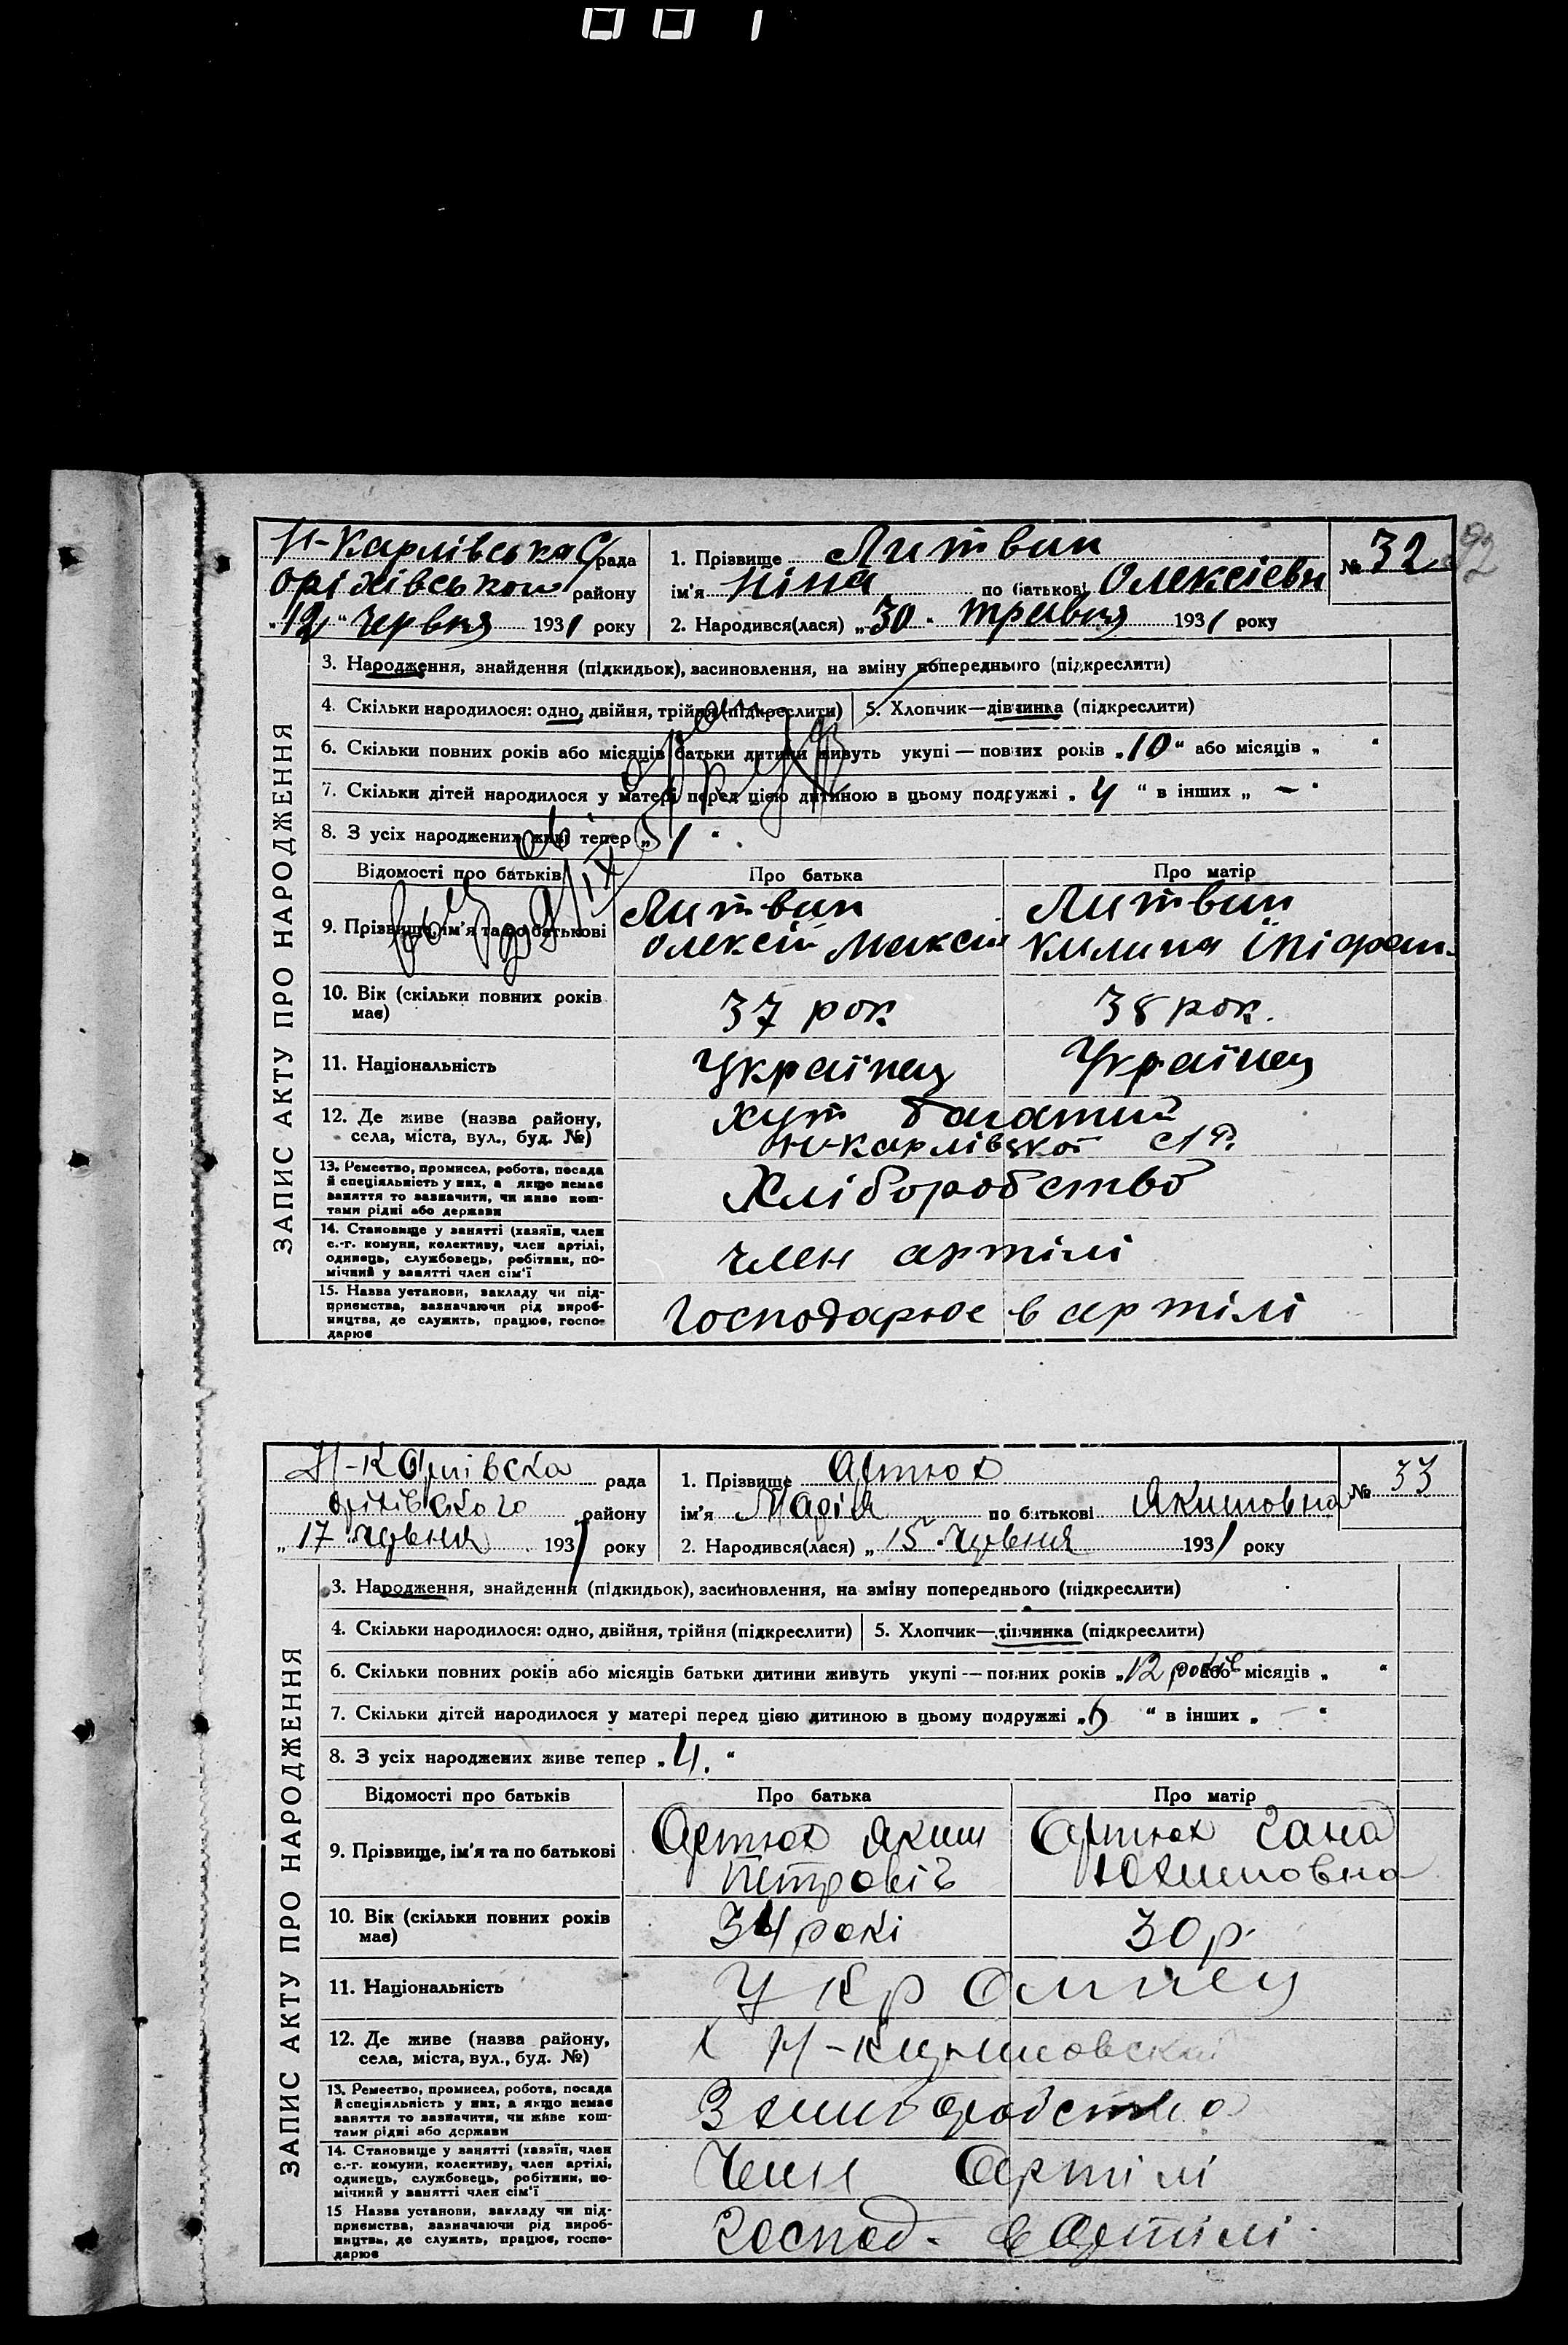 Н-Карлівська С/рада
оріхівськои району
„12„ червня 1931 року
1. Прізвище Литвин
ім'я Ніна по батькові Олексіевн
2. Народився(лася) „30„ травня 1931 року
№ 32
92
ЗАПИС АКТУ ПРО НАРОДЖЕННЯ
3. Народження, знайдення (підкидьок), засиновлення, на зміну попереднього (підкреслити)
4. Скільки народилося: одно, двійня, трійня (підкреслити)
5. Хлопчик—дівчинка (підкреслити)
6. Скільки повних років або місяців батьки дитини живуть укупі — повних років „10“ або місяців „ “
7. Скільки дітей народилося у матері перед цією дитиною в цьому подружжі „4“ в інших „—“
8. З усіх народжених живі тепер „1“
Відомості про батьків
Про батька
Про матір
9. Прізвище, ім'я та по батькові
Литвин
Олексій Максим
Литвин
Килина Іпіфан.
10. Вік (скільки повних років
має)
37 рок
38 рок.
11. Національність
Українец
Українец
12. Де живе (назва району,
села, міста, вул., буд. №)
хут багатий
Н-карлівської с/р.
13. Ремество, промисел, робота, посада
й спеціяльність у них, а якщо немає
заняття то зазначити, чи живе кош-
тами рідні або держави
Хліборобство
14. Становище у занятті (хазяїн, член
с.-г. комуни, колективу, член артілі,
одинець, службовець, робітник, по-
мічний у занятті член сім'ї
член артілі
15. Назва установи, закладу чи під-
приємства, зазначаючи рід вироб-
ництва, де служить, працює, госпо-
дарює
Господарює в артілі
Н-Карлівска рада
Оріхівского району
„17 червня 1931 року
1. Прізвище Артюх
ім'я Марія по батькові Якимовна
2. Народився(лася) „15„ червня 1931 року
№ 33
ЗАПИС АКТУ ПРО НАРОДЖЕННЯ
3. Народження, знайдення (підкидьок), засиновлення, на зміну попереднього (підкреслити)
4. Скільки народилося: одно, двійня, трійня (підкреслити)
5. Хлопчик—дівчинка (підкреслити)
6. Скільки повних років або місяців батьки дитини живуть укупі — повних років „12 років або місяців „ “
7. Скільки дітей народилося у матері перед цією дитиною в цьому подружжі „ “ в інших „ “
8. З усіх народжених живе тепер „4.“
Відомості про батьків
Про батька
Про матір
9. Прізвище, ім'я та по батькові
Артюх Яким
Петровіч
Артюх Гана
Юхимовна
10. Вік (скільки повних років
має)
34 рокі
30 р.
11. Національність
Украинец
12. Де живе (назва району,
села, міста, вул., буд. №)
х Н-
13. Ремество, промисел, робота, посада
й спеціяльність у них, а якщо немає
заняття то зазначити, чи живе кош-
тами рідні або держави
14. Становище у занятті (хазяїн, член
с.-г. комуни, колективу, член артілі,
одинець, службовець, робітник, по-
мічний у занятті член сім'ї
Член Артілі
15 Назва установи, закладу чи під-
приємства, зазначаючи рід вироб-
ництва, де служить, працює, госпо-
дарює
Господ. в Артілі